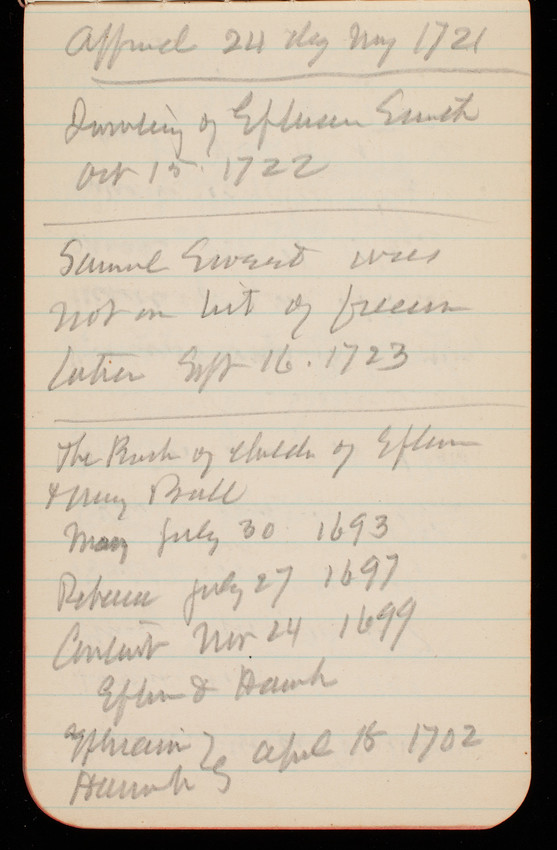 Apprised 24 day May 1721
Inventory of Ephraim Smith
Oct 15 1722
Samuel Everest was
Not on list of freemen
taken Sept 16. 1723
The Birth of childn of Ephraim
& Mary Bull
Mary July 30 1693
Rebecca July 27 1697
Content Nov 24 1699
Ephm & Hannah
Ephraim } April 18 1702
Hannah